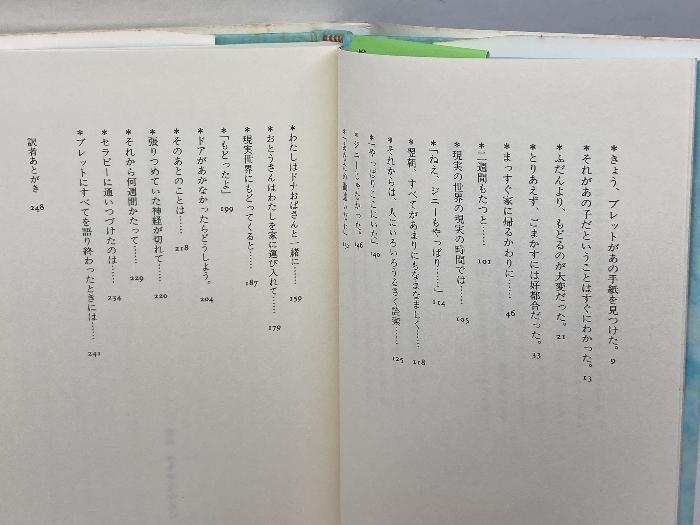 ＊きょう、ブレットがあの手紙を見つけた。 9
＊それがあの子だということはすぐにわかった。 13
＊ふだんより、もどるのが大変だった。 21
＊とりあえず、ごまかすには好都合だった。 33
＊まっすぐ家に帰るかわりに…… 46
＊二週間もたつと…… 101
＊現実の世界の現実の時間では…… 105
＊「ねえ、ジニーもやっぱり……」 114
＊翌朝、すべてがあまりにもなまなましく…… 118
＊それからは、人にいろいろうるさく詮索…… 125
＊「やっぱりここにいた」 140
＊ジニーじゃなかった。 146
＊わたしはドナおばさんと一緒に…… 159
＊おとうさんはわたしを家に運び入れて…… 179
＊現実世界にもどってくると…… 187
＊「もどったよ」 199
＊ドアがあかなかったらどうしよう。 204
＊そのあとのことは…… 218
＊張りつめていた神経が切れて…… 220
＊それから何週間かたって…… 229
＊セラピーに通いつづけたのは…… 234
＊ブレットにすべてを語り終わったときには…… 241
訳者あとがき 248